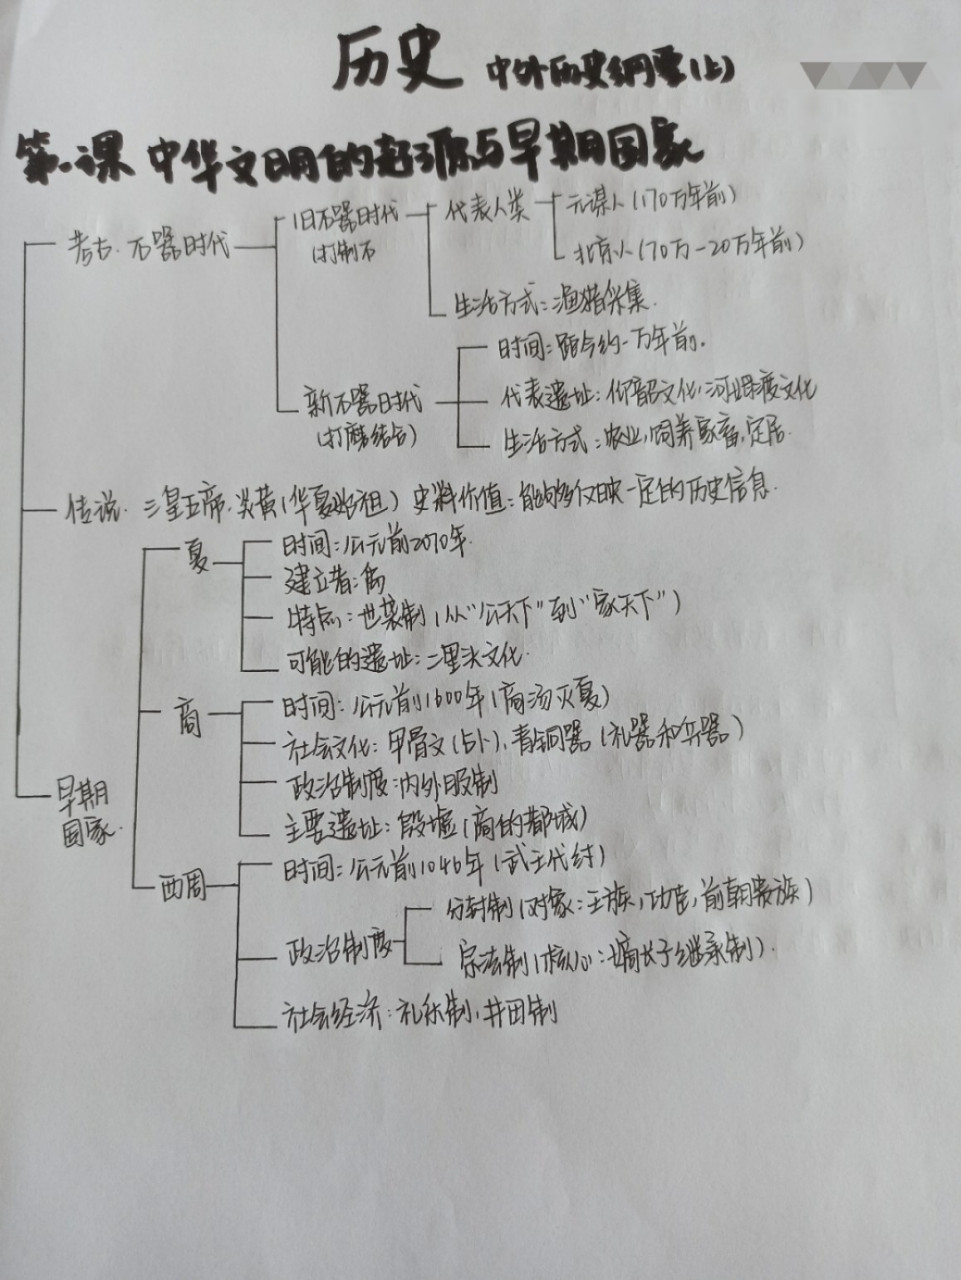 历史 中外历史纲要(上)
第一课 中华文明的起源与早期国家
考古.石器时代
旧石器时代
(打制石
代表人类
元谋人(170万年前)
北京人(70万-20万年前)
生活方式:渔猎采集.
新石器时代
(打磨结合)
时间:距今约一万年前.
代表遗址:仰韶文化,河姆渡文化
生活方式:农业,饲养家畜,定居.
传说.三皇五帝.炎黄(华夏始祖) 史料价值:能够反映一定的历史信息.
早期
国家.
夏
时间:公元前2070年.
建立者:禹
特点:世袭制(从“公天下”到“家天下”)
可能的遗址:二里头文化.
商
时间:公元前1600年(商汤灭夏)
社会文化:甲骨文(占卜),青铜器(礼器和兵器)
政治制度:内外服制
主要遗址:殷墟(商的都城)
西周
时间:公元前1046年(武王伐纣)
政治制度
分封制(对象:王族,功臣,前朝贵族)
宗法制(核心:嫡长子继承制).
社会经济:礼乐制,井田制